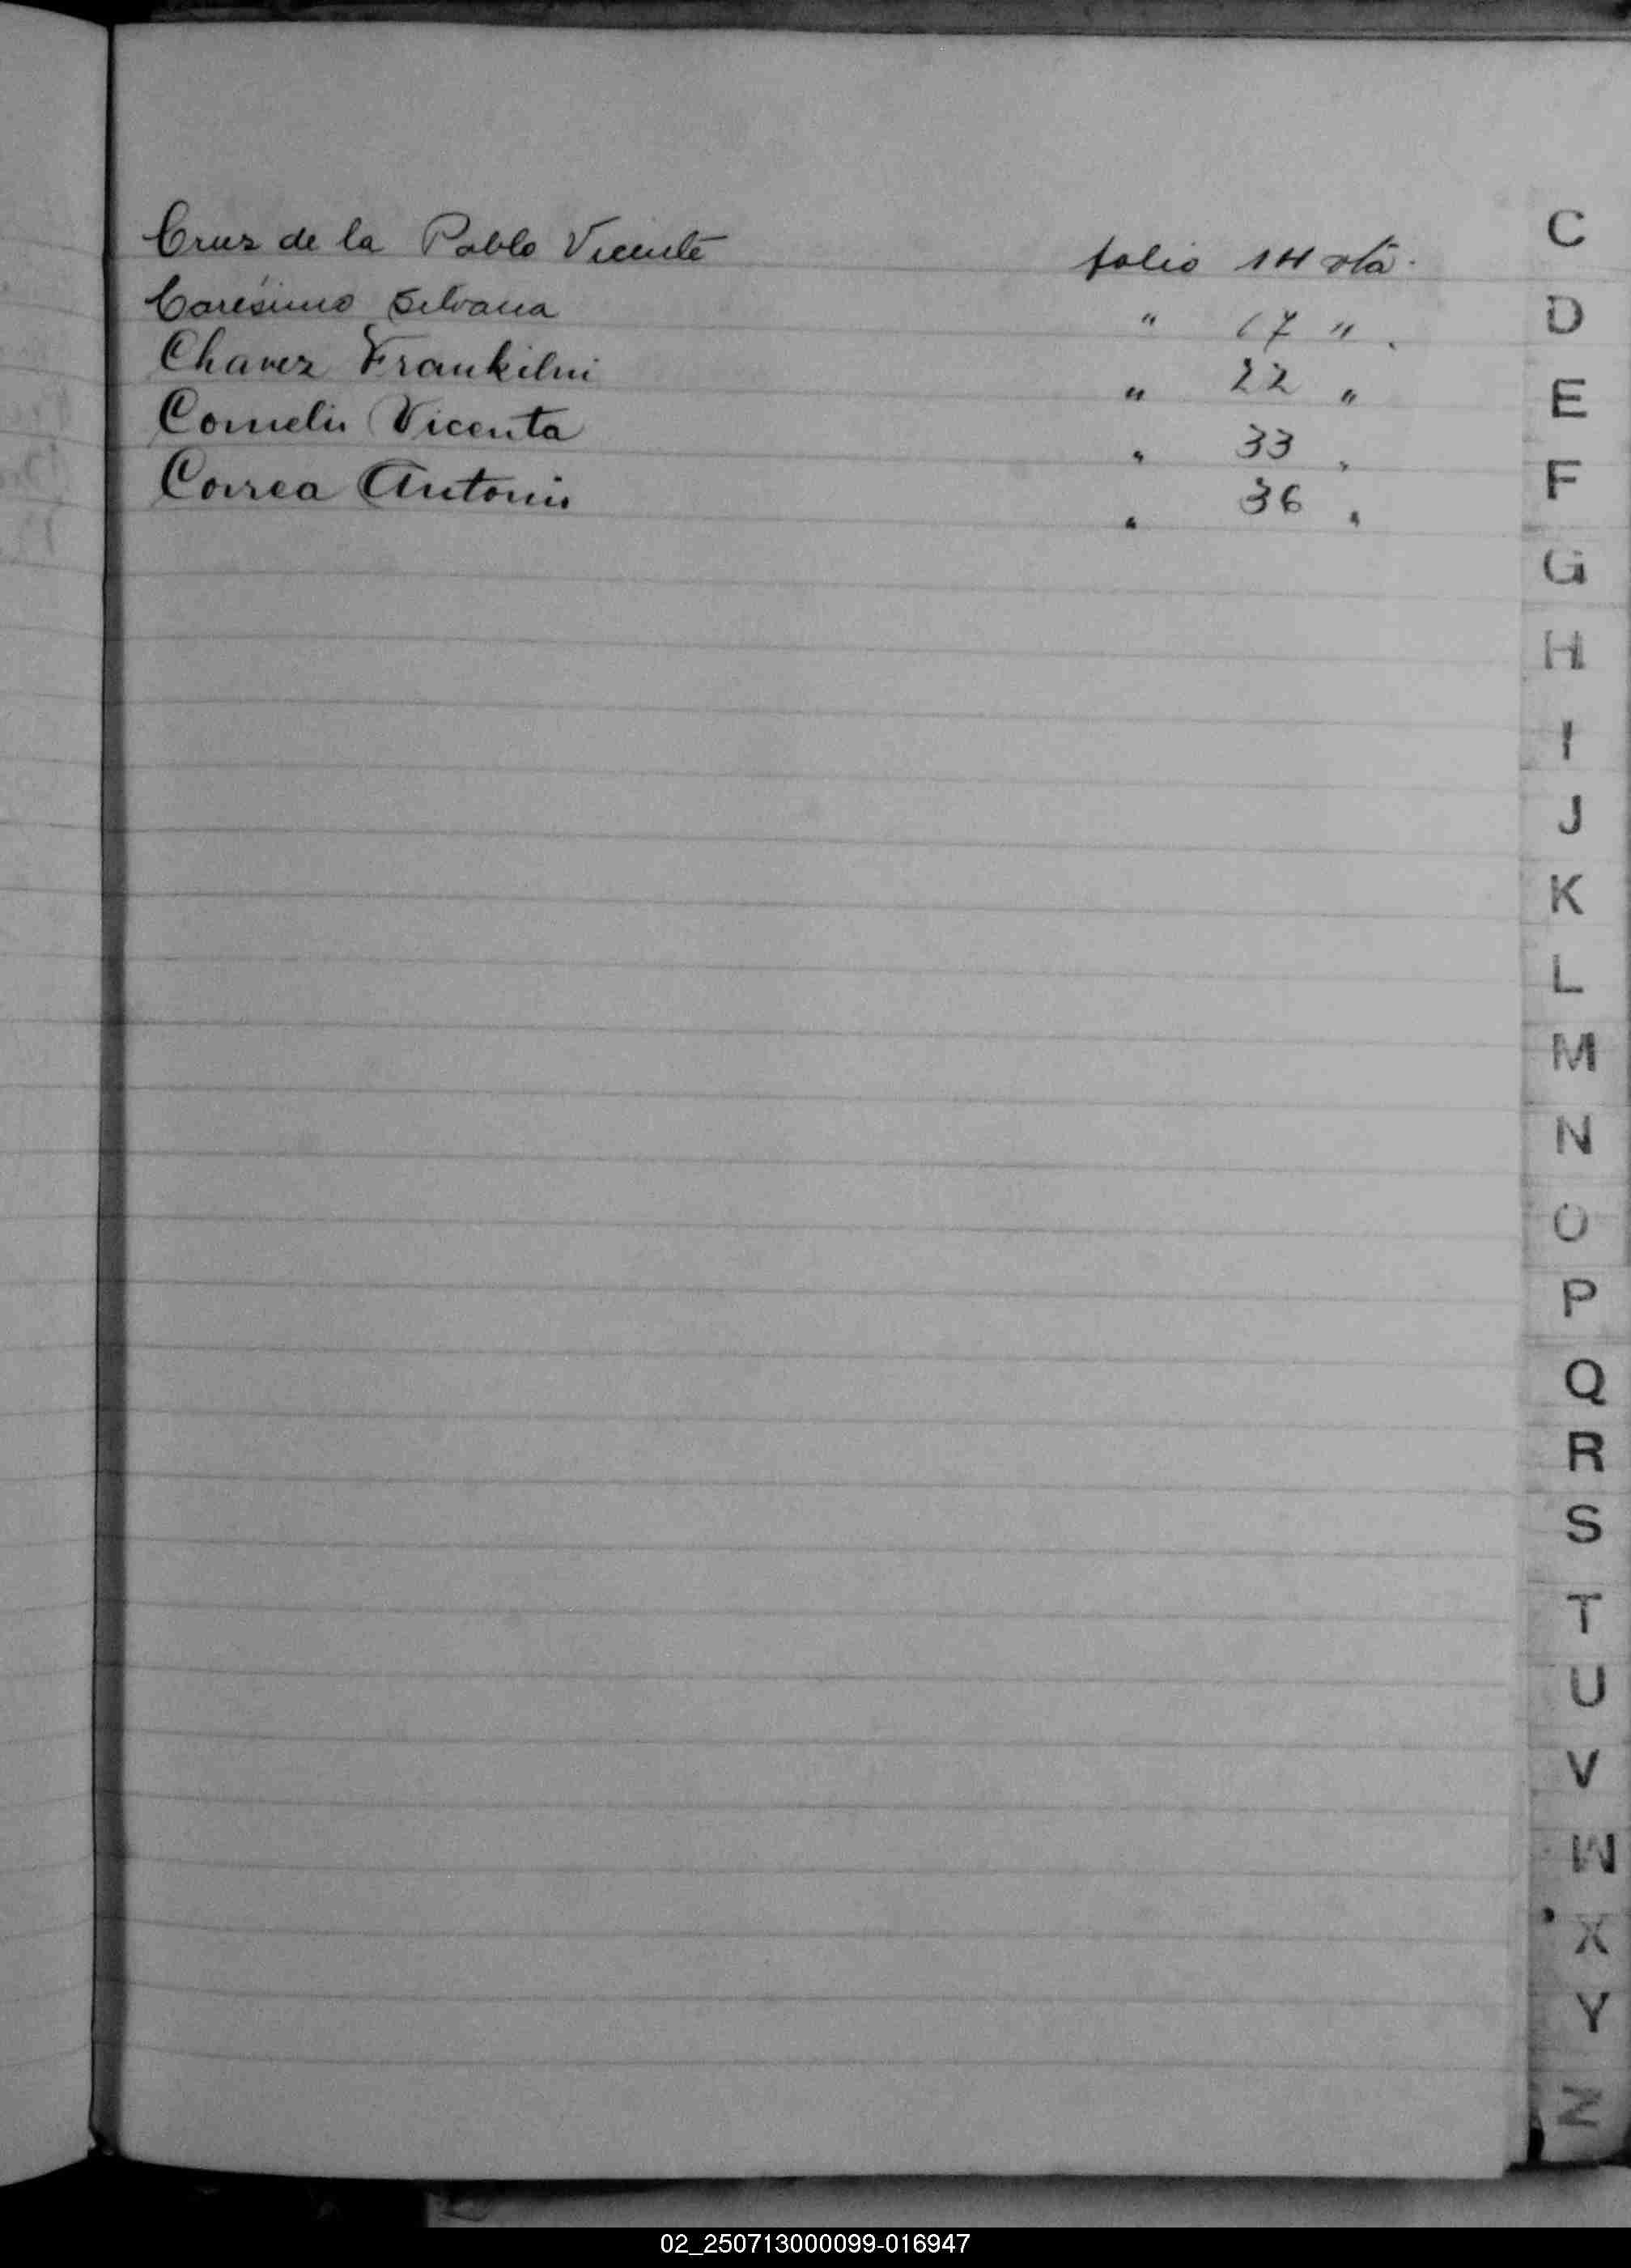 Cruz de la Pablo Vicente folio 14 vta.
Carésimo Silvana " 17 " .
Chavez Frankilni " 22 "
Cornelio Vicenta " 33 "
Correa Antonio " 36 "
C
D
E
F
G
H
I
J
K
L
M
N
O
P
Q
R
S
T
U
V
W
X
Y
Z
02_250713000099-016947